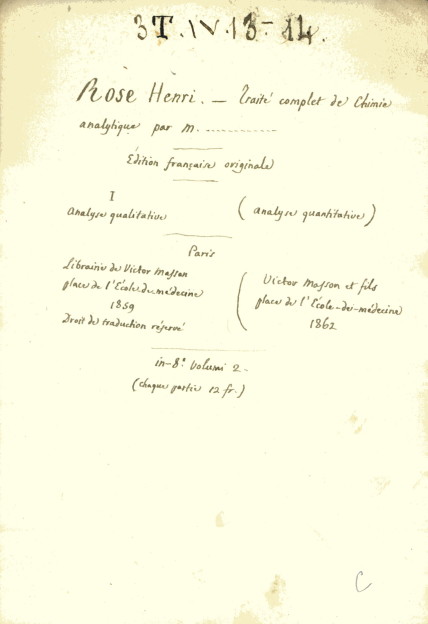 3T. IV. 13-14.
Rose Henri. — Traité complet de Chimie
analytique par M. ------------
Édition française originale
I
Analyse qualitative
(analyse quantitative)
Paris
Librairie de Victor Masson
place de l'École de médecine
1859
Droit de traduction réservé
Victor Masson et fils
place de l'École-de-médecine
1862
in-8° Volumi 2-
(chaque partie 12 fr.)
C